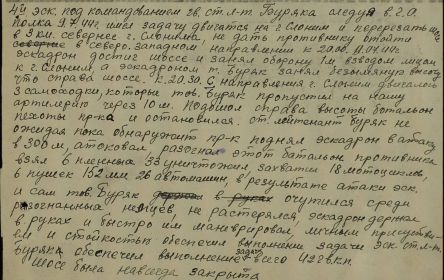 4й эск. под командованием гв. ст. л-т. Буряка следуя в г.д.
полка 9.7.44г. имея задачу двигатся на г. Слоним и перерезать шоссе
в 3 км. севернее г. Слонима, не дать противнику отойти
в северо. западном направлении к 20.00. 9.07.44г.
эскадрон достиг шоссе и занял оборону 1м взводом лицом
к г. Слоним, а эскадроном т. Буряк занял безымянную высоту
что справа шоссе. к 20.30 с направления г. Слоним двигалось
3 самоходки, которые тов. Буряк пропустил на нашу
артилерию через 10 м. Подошол справа высоты батальон
пехоты пр-ка и остановился. ст. лейтенант Буряк не
ожидая пока обнаружит пр-к поднял эскадрон в атаку
в 300 м, атоковал разогнал этот батальон противника
взял 6 пленных 33 уничтожил, захватил 18 мотоциклов,
6 пушек 152 мм 26 автомашин, в результате атаки эск.
и сам тов. Буряк в очутился среди
разогнанных немцев, не растерялся, эскадрон держал
в руках и быстро им маневрировал, личным присутстви-
ем, и стойкостью обеспечил выполнение задачи эск. ст. л-т.
Буряка обеспечил выполнение задач всего 43 гв кп.
Шосе была навсегда закрыта